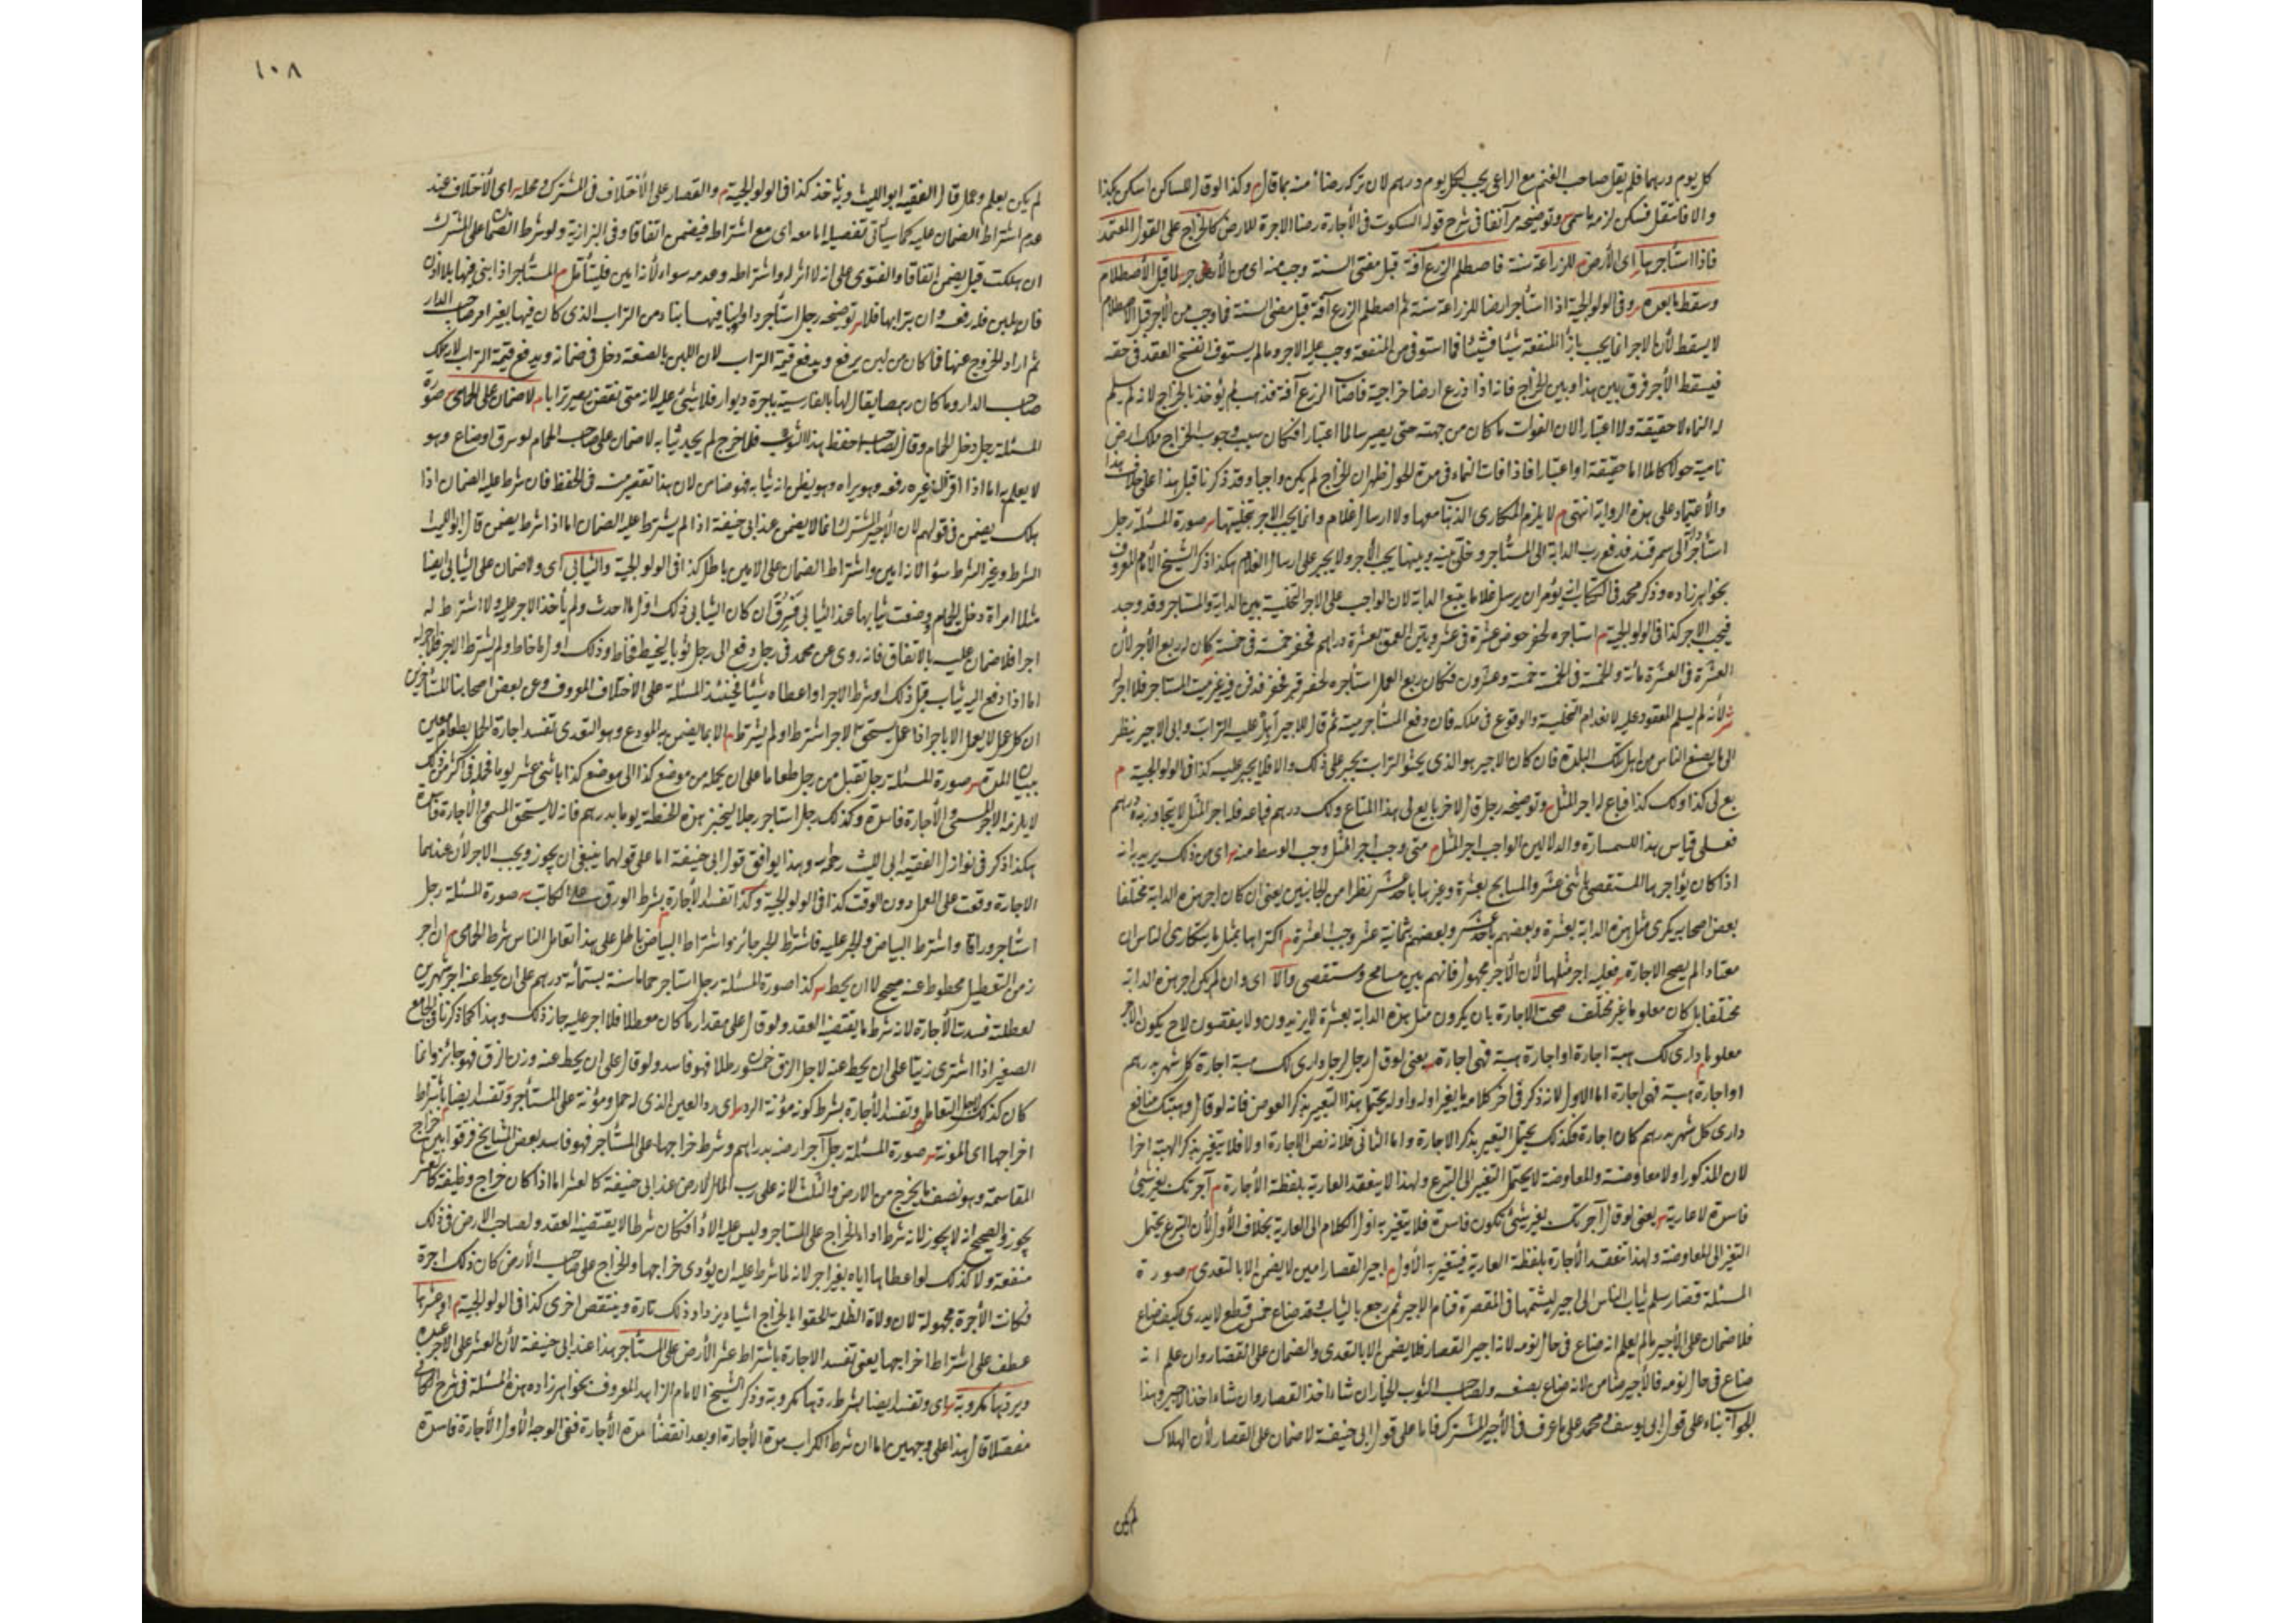 كل يوم درهما فلم يقل صاحب الغنم مع الراعي يجب لكل يوم درهم لان تركه رضاء منه بما قال م وكذا لو قال للساكن اسكن بكذا
والا فانتقل فسكن لزمه ما سمى س وتوضيحه مر آنفا في شرح قوله السكوت في الاجارة رضا الاجرة للارض كالخراج على القول المعتمد
فاذا استأجرها اى الأرض م للزراعة سنة فاصطلم الزرع آفة قبل مضى السنة وجب منه اى من الأجر لما قبل الأصطلام
وسقط ما بعده س وفى الولوالجية اذا استأجر ارضا للزراعة سنة ثم اصطلم الزرع آفة قبل مضى السنة فما وجب من الأجر قبل الاصطلام
لا يسقط لأن الاجر انما يجب بازاء المنفعة شيئا فشيئا فما استوفى من المنفعة وجب عليه الاجر وما لم يستوف انفسخ العقد فى حقه
فيسقط الأجر فرق بين هذا وبين الخراج فانه اذا زرع ارضا خراجية فاصاب الزرع آفة فذهب لم يؤخذ بالخراج لانه لم يسلم
له النماء لا حقيقة ولا اعتبارا لان الفوات ما كان من جهته حتى يصير سالما اعتبارا فكان سبب وجوب الخراج ملك ارض
نامية حولا كاملا اما حقيقة او اعتبارا فاذا فات النماء فى مدة الحول ظهر ان الخراج لم يكن واجبا وقد ذكرنا قبل هذا على خلاف هذا
والأعتماد على هذه الرواية انتهى م لا يلزم المكارى الذهاب معها ولا ارسال غلام وانما يجب الاجر بتخليتها س صورة المسئلة رجل
استأجر دابة الى سمرقند فدفع رب الدابة الى المستأجر وخلى بينه وبينها يجب الأجر ولا يجبر على ارسال الغلام هكذا ذكر الشيخ الأمام المعروف
بخواهر زاده وذكر محمد فى الكتاب انه يؤمر ان يرسل غلاما يتبع الدابة لان الواجب على الاجر التخلية بين الدابة والمستاجر وقد وجد
فيجب الاجر كذا فى الولوالجية م استاجره لحفر حوض عشرة فى عشر وبين العمق بعشرة دراهم فحفر خمسة فى خمسة كان له ربع الأجر لأن
العشرة فى العشرة مائة والخمسة فى الخمسة خمسة وعشرون فكان ربع العمل استأجره لحفر قبر فحفر فدفن فيه غير ميت المستاجر فلا اجر له
س لأنه لم يسلم المعقود عليه لانعدام التخلية والوقوع فى ملكه فان دفع المستأجر ميته ثم قال للاجير اهل عليه التراب وابى الاجير ينظر
الى ما يصنع الناس من اهل تلك البلدة فان كان الاجير هو الذى يحثو التراب يجبر على ذلك والا فلا يجبر عليه كذا فى الولوالجية م
بع لى كذا ولك كذا فباع له اجر المثل س وتوضيحه رجل قال لاخر بايع لى هذا المتاع ولك درهم فباعه فله اجر المثل لا يتجاوز به درهم
فعلى قياس هذا السمسارة والدلالين الواجب اجر المثل م متى وجب اجر المثل وجب الوسط منه س اى من ذلك يريد به انه
اذا كان يؤاجرها المستقصى باثنى عشر والمسامح بعشرة وغيرها باحد عشر نظرا من الجانبين يعنى ان كان اجر هذه الدابة مختلفا
بعض اصحابه يكرى مثل هذه الدابة بعشرة وبعضهم باحد عشر وبعضهم ثمانية عشر م اكتراها بمثل ما يتكارى الناس ان
معتادا لم يصح الاجارة س فعليه اجر مثلها لأن الأجر مجهول فانهم بين مسامح ومستقصى والا اى وان لم يكن اجر هذه الدابة
مختلفا بل كان معلوما غير مختلف صحت الاجارة بان يكرون مثل هذه الدابة بعشرة لا يزيدون ولا ينقصون لانه ح يكون الأجر
معلوما م دارى لك هبة اجارة او اجارة هبة فهى اجارة س يعنى لو قال رجل لرجل دارى لك هبة اجارة كل شهر بدرهم
او اجارة هبة فهى اجارة اما الاول لانه ذكر فى اخر كلامه ما يغير اوله واوله يحتمل هذا التغيير بذكر العوض فانه لو قال وهبتك منافع
دارى كل شهر بدرهم كان اجارة فكذلك يحتمل التغيير بذكر الاجارة واما الثانى فلانه نص الاجارة اولا فلا يتغير بذكر الهبة اخرا
لان المذكور اولا معاوضة والمعاوضة لا يحتمل التغير الى التبرع ولهذا لا ينعقد العارية بلفظة الأجارة م آجرتك بغير شئ
فاسدة لا عارية س يعنى لو قال آجرتك بغير شئ تكون فاسدة فلا يتغير به اول الكلام الى العارية بخلاف الأول لأن التبرع يحتمل
التغير الى المعاوضة ولهذا تنعقد الأجارة بلفظة العارية فيتغير به الأول م اجير القصار امين لا يضمن الا بالتعدى س صورة
المسئلة قصار سلم ثياب الناس الى اجير ليشمها فى المقصرة فنام الاجير ثم رجع بالثياب وقد ضاع خمس قطع لا يدرى كيف ضاع
فلا ضمان على الأجير ما لم يعلم انه ضاع فى حال نومه لانه اجير القصار فلا يضمن الا بالتعدى والضمان على القصار وان علم انه
ضاع فى حال نومه فالأجير ضامن لانه ضاع بصنعه ولصاحب الثوب الخيار ان شاء اخذ القصار وان شاء اخذ الاجير وهذا
الجواب بناء على قول ابى يوسف ومحمد على ما عرف فى الأجير المشترك فاما على قول ابى حنيفة لا ضمان على القصار لأن الهلاك
١٠٨
لم يكن يعلم وعمل قال الفقيه ابو الليث وبه ناخذ كذا فى الولوالجية م والقصار على الأختلاف فى المشترك ومحله س اى الأختلاف عند
عدم اشتراط الضمان عليه كما سيأتى تفصيله اما معه اى مع اشتراط فيضمن اتفاقا وفى البزازية ولو شرط الضمان على المشترك
ان هلكت قيل يضمن اتفاقا والفتوى على انه لا اثر له واشتراطه وعدمه سواء لأنه امين فليتأمل م المستأجر اذا بنى فيها بلا اذن
فان بلبن فله رفعه وان بترابها فلا س توضيحه رجل استأجر دارا وبنى فيها بناء من التراب الذى كان فيها بغير امر صاحب الدار
ثم اراد الخروج عنها فما كان من لبن يرفع ويدفع قيمة التراب لان اللبن بالصنعة دخل فى ضمانه ويدفع قيمة التراب لانه ملك
صاحب الدار وما كان رهصا يقال لها بالفارسية باجرة ديوار فلا شئ عليه لانه متى نقض يصير ترابا م لا ضمان على الحمامى س صورة
المسئلة رجل دخل الحمام وقال لصاحبه احفظ هذا الثوب فلما خرج لم يجد ثيابه لا ضمان على صاحب الحمام لو سرق او ضاع وهو
لا يعلم به اما اذا اقر ان غيره رفعه وهو يراه وهو يظن انه ثيابه فهو ضامن لان هذا تقصير منه فى الحفظ فان شرط عليه الضمان اذا
هلك يضمن فى قولهم لان الأجير المشترك انما لا يضمن عند ابى حنيفة اذا لم يشترط عليه الضمان اما اذا شرط يضمن قال ابو الليث
الشرط وغير الشرط سواء لانه امين واشتراط الضمان على الامين باطل كذا فى الولوالجية والثيابى اى ولا ضمان على الثيابى ايضا
مثلا امراة دخل الحمام وضعت ثيابها عند الثيابى فسرق ان كان الثيابى ذلك اول ما احدث ولم يأخذ الاجر عليه ولا اشترط له
اجرا فلا ضمان عليه بالاتفاق فانه روى عن محمد فى رجل دفع الى رجل ثوبا ليخيط فخاط وذلك اول ما خاط ولم يشترط الاجر فلا اجر له
اما اذا دفع اليه ثياب قبل ذلك او شرط الاجر او اعطاه شيئا فحينئذ المسئلة على الاختلاف المعروف وعن بعض اصحابنا المتأخرين
ان كل عمل لا يعمل الا باجر اذا عمل يستحق الاجر اشترط او لم يشترط س الا بما يضمن به المودع وهو التعدى تفسد اجارة الحمال بطعام معين
ببيان المدة س صورة المسئلة رجل تقبل من رجل طعاما على ان يحمله من موضع كذا الى موضع كذا باثنى عشر يوما فحمله فى اكثر من ذلك
لا يلزمه الاجر المسمى والأجارة فاسدة وكذلك رجل استاجر رجلا ليخبز هذه الحنطة يوما بدرهم فانه لا يستحق المسمى والاجارة فاسدة
هكذا ذكر فى نوازل الفقيه ابى الليث رحمه الله وهذا يوافق قول ابى حنيفة اما على قولهما ينبغى ان يجوز ويجب الاجر لأن عندهما
الاجارة وقعت على العمل دون الوقت كذا فى الولوالجية وكذا تفسد الأجارة بشرط الورق على الكاتب س صورة المسئلة رجل
استاجر وراقا واشترط البياض والحبر عليه فاشتراط الحبر جائز واشتراط البياض باطل على هذا تعامل الناس شرط الحمامى م ان اجر
زمن التعطيل محطوط عنه صحيح لا ان يحط س كذا صورة المسئلة رجل استاجر حماما سنة بستمائة درهم على ان يحط عنه اجر شهرين
لعطلته فسدت الأجارة لانه شرط ما يقتضيه العقد ولو قال على مقدار ما كان معطلا فلا اجر عليه جاز ذلك وهذا كما ذكرنا فى الجامع
الصغير اذا اشترى زيتا على ان يحط عنه لاجل الزق خمسون رطلا فهو فاسد ولو قال على ان يحط عنه وزن الزق فهو جائز وانما
كان كذلك لاجل التعامل وتفسد الأجارة بشرط كونه مؤنة الرد س اى رد العين الذى له حمل ومؤنة على المستأجر وتفسد ايضا باشتراط
اخراجها اى المؤنة س صورة المسئلة رجل آجر ارضه بدراهم وشرط خراجها على المستأجر فهو فاسد بعض المشايخ فرقوا بين خراج
المقاسمة وهو نصف ما يخرج من الارض والثلث لانه على رب المال لا لارض عند ابى حنيفة كالعشر اما اذا كان خراج وظيفة كالعشر
يجوز والصحيح انه لا يجوز لانه شرط اداء الخراج على المستاجر وليس عليه الاداء فكان شرطا لا يقتضيه العقد ولصاحب الارض فى ذلك
منفعة ولا كذلك لو اعطاها اياه بغير اجر لانه لما شرط عليه ان يؤدى خراجها والخراج على صاحب الأرض كان ذلك اجرة
فكانت الأجرة مجهولة لان ولاة الظلمة الحقوا بالخراج اشياء يزداد ذلك تارة وينتقص اخرى كذا فى الولوالجية م او عشرها
عطف على اشتراط اخراجها يعنى تفسد الاجارة باشتراط عشر الأرض على المستأجر هذا عند ابى حنيفة لأن العشر على الاجر عنده
وبردها مكروبة س اى وتفسد ايضا بشرط ردها مكروبة وذكر الشيخ الامام الزاهد المعروف بخواهر زاده هذه المسئلة فى شرح الكافى
مفصلا قال هذا على وجهين اما ان شرط الكراب مدة الأجارة او بعد انقضاء مدة الأجارة ففى الوجه الأول الأجارة فاسدة